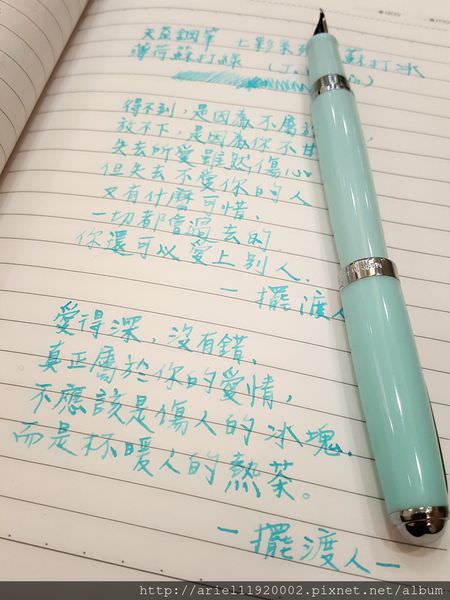 鋼筆 七彩系 蘇打冰
薄荷蘇打綠
得不到,是因為不屬
放不下,是因為你不甘
失去所愛雖然傷心
但失去不愛你的人
又有什麼可惜,
一切都會過去的
你還可以愛上別人.
— 擺渡人
愛得深,沒有錯,
真正屬於你的愛情,
不應該是傷人的冰塊.
而是杯暖人的熱茶。
— 擺渡人 —
http://ariel11920002.pixnet.net/album